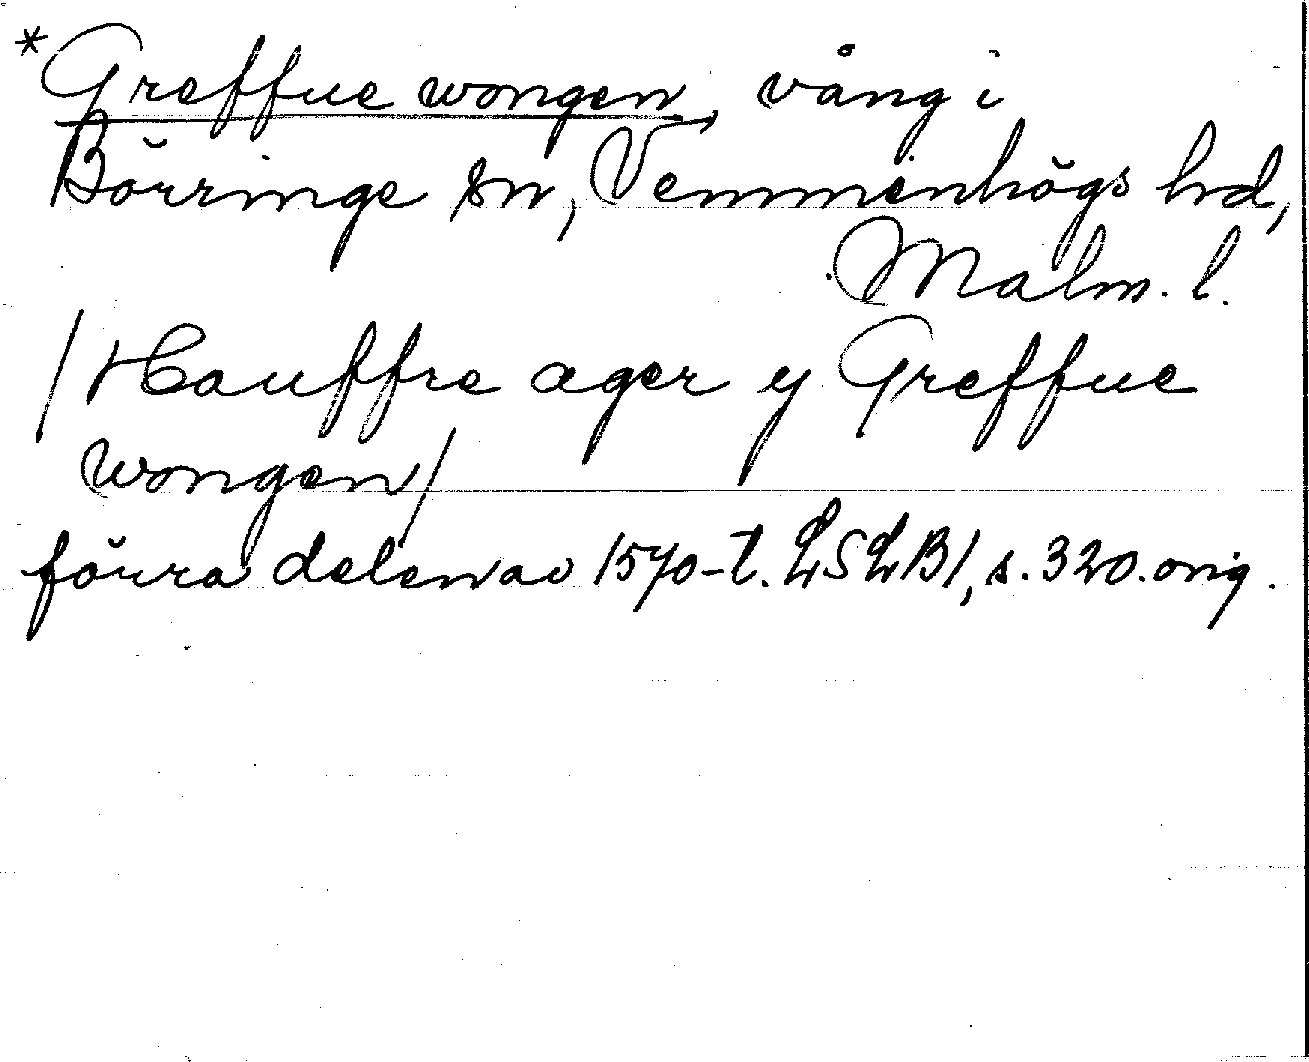 *Greffue wongen, vång i
Börringe sn, Vemmenhögs hd,
Malm. l.
/Hauffre ager y Greffue
wongen/
förra delen av 1570-t. LSLB1, s. 320. orig.